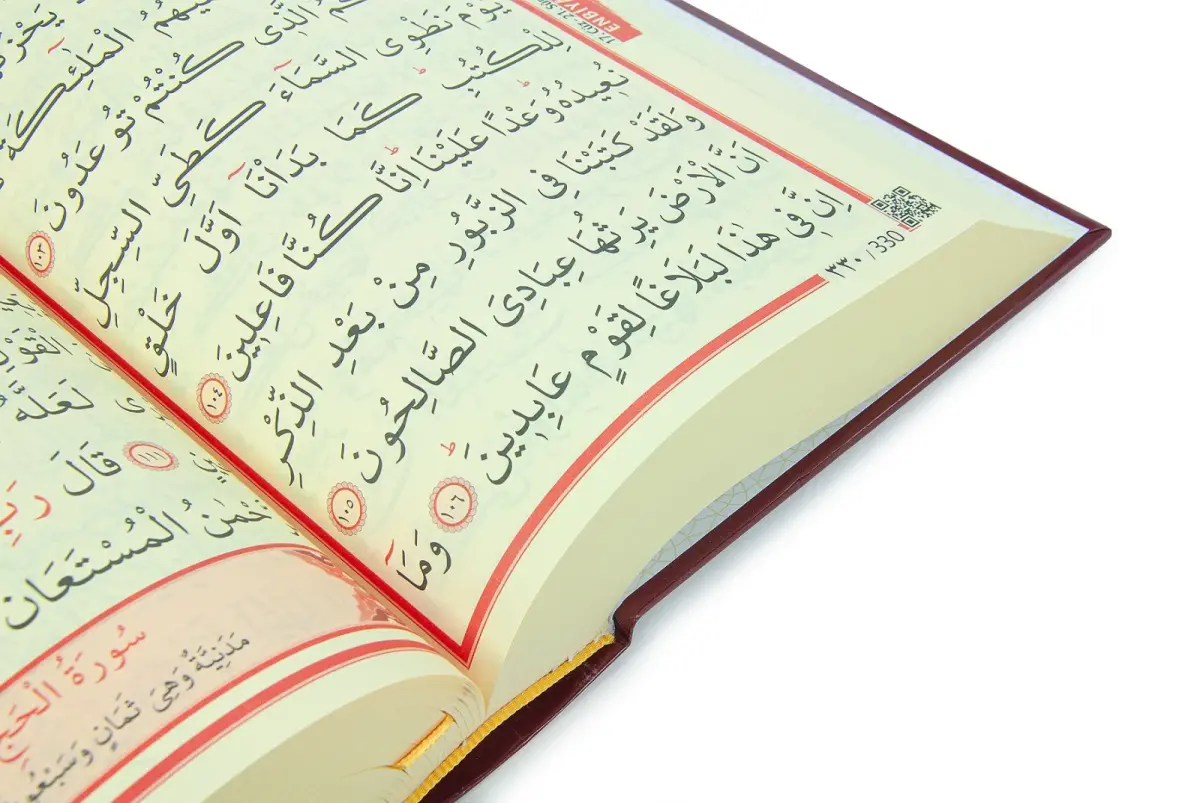 17. Cüz-21. Sû
الْمَلٰٓئِكَةُ
الَّذٖى كُنْتُمْ تُوعَدُونَ ١٠٣
يَوْمَ نَطْوِى السَّمَٓاءَ كَطَىِّ السِّجِلِّ
لِلْكُتُبِ كَمَا بَدَاْنَٓا اَوَّلَ خَلْقٍ
نُعٖيدُهُ وَعْدًا عَلَيْنَا اِنَّا كُنَّا فَاعِلٖينَ ١٠٤
وَلَقَدْ كَتَبْنَا فِى الزَّبُورِ مِنْ بَعْدِ الذِّكْرِ
اَنَّ الْاَرْضَ يَرِثُهَا عِبَادِىَ الصَّالِحُونَ ١٠٥
اِنَّ فٖى هٰذَا لَبَلَاغًا لِقَوْمٍ عَابِدٖينَ ١٠٦ وَمَٓا
٣٣٠/330
الْقَوْلِ
لَعَلَّهُ
١١١ قَالَ رَبِّ
الْمُسْتَعَانُ
سُورَةُ الْحَجِّ
مَدَنِيَّةٌ وَهِىَ ثَمَانٍ وَسَبْعُو